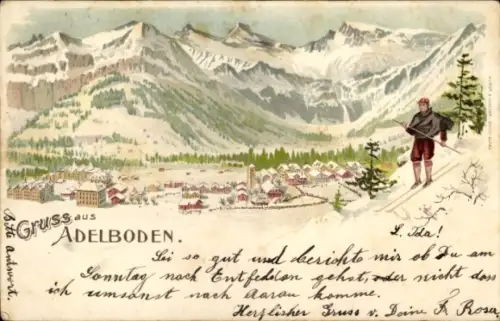 Gruss aus
ADELBODEN.
L. Ida!
Sei so gut und berichte mir ob Du am
Sonntag nach Entfelden gehst, oder nicht dass
ich umsonst nach Aarau komme.
Herzlicher Gruss v. Deine Fr. Rosa
Bitte antwort.